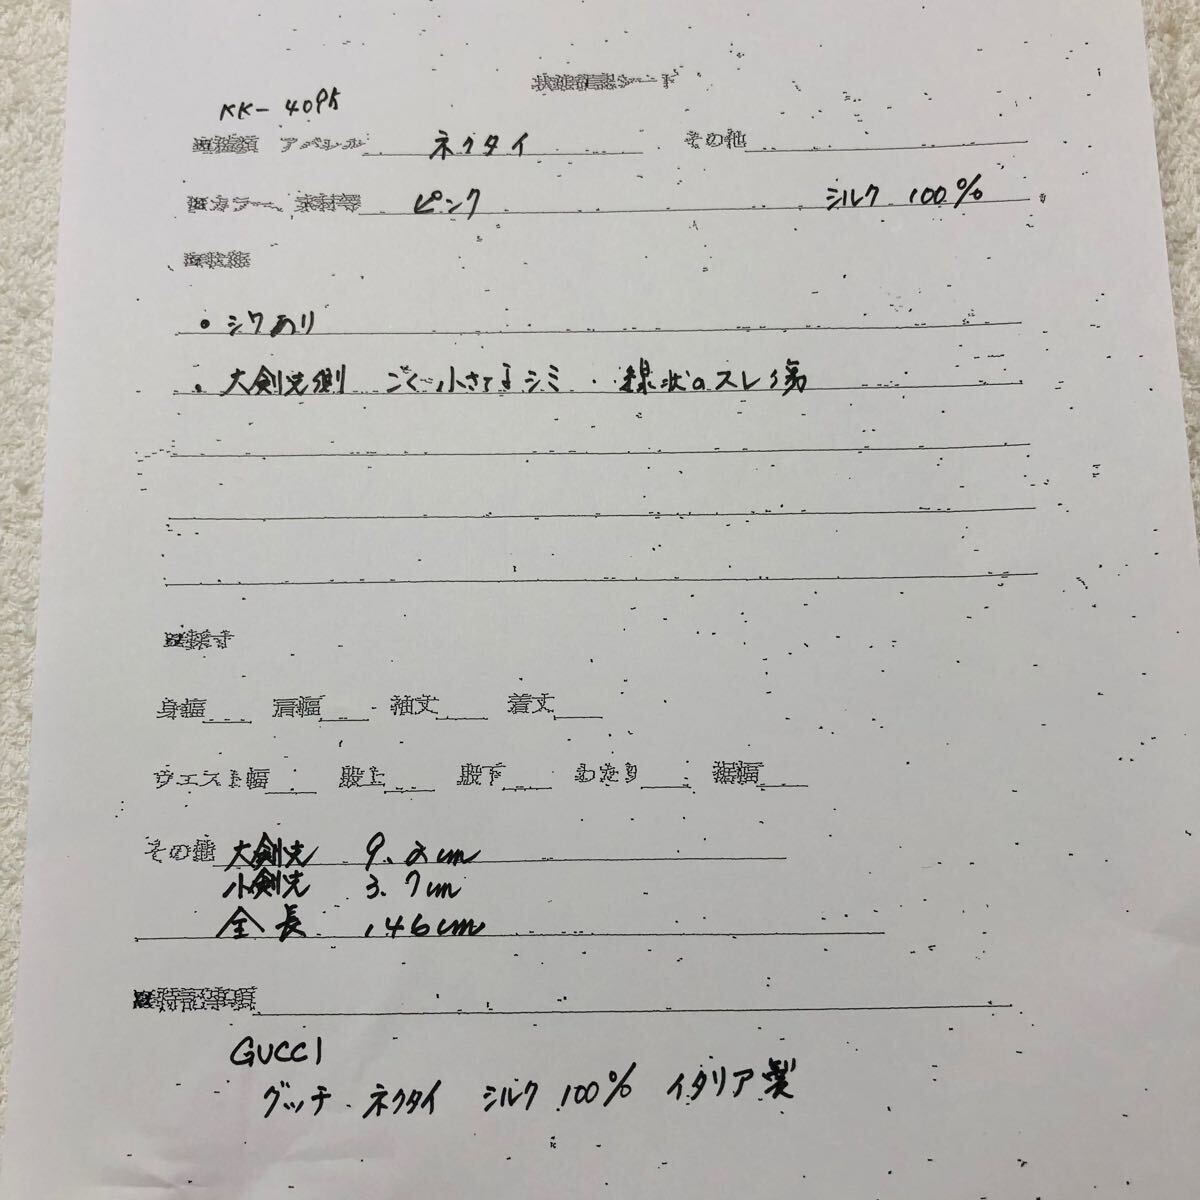 状態確認シート
KK-40PK
■種類 アパレル ネクタイ その他
■カラー、素材等 ピンク シルク 100%
■状態
• シワあり
• 大剣先側 ごく小さなシミ ・線状のスレ傷
■採寸
身幅 肩幅 袖丈 着丈
ウエスト幅 股上 股下 わたり 裾幅
その他 大剣先 9.2cm
小剣先 3.7cm
全長 146cm
■特記事項
GUCCI
グッチ ネクタイ シルク 100% イタリア製